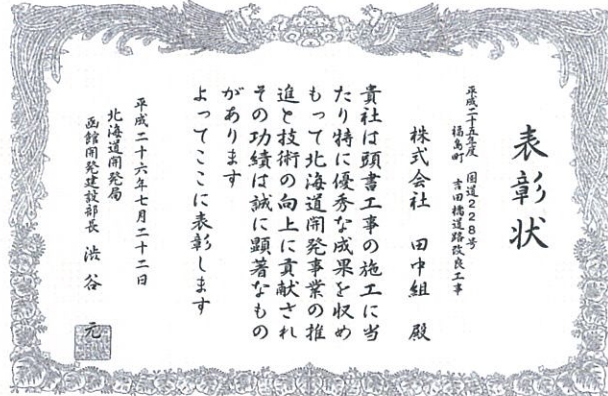 表彰状
平成二十五年度 国道228号
福島町 吉田橋道路改良工事
株式会社 田中組 殿
貴社は頭書工事の施工に当
たり特に優秀な成果を収め
もって北海道開発事業の推
進と技術の向上に貢献され
その功績は誠に顕著なもの
があります
よってここに表彰します
平成二十六年七月二十二日
北海道開発局
函館開発建設部長 渋谷 元